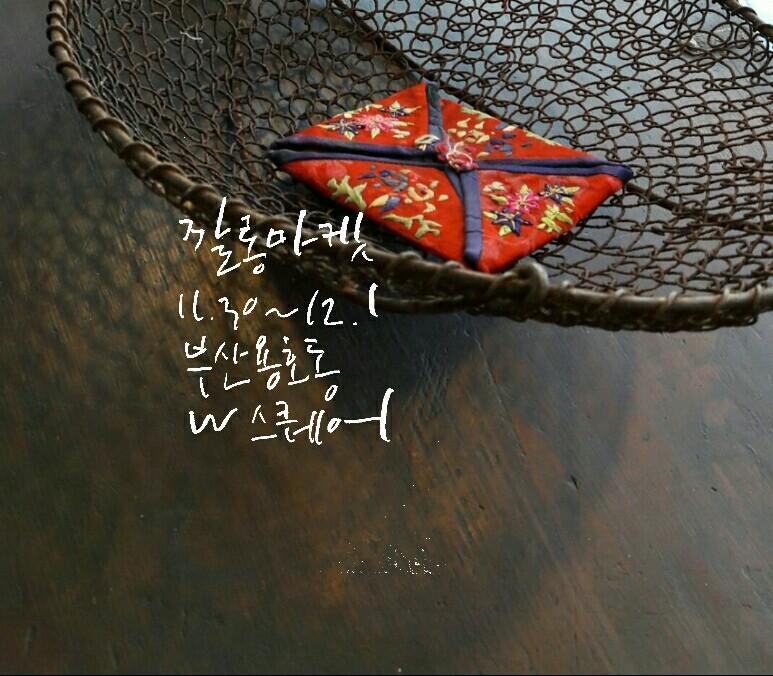 잘롱마켓
11.30~12.1
부산용호동
W 스퀘어